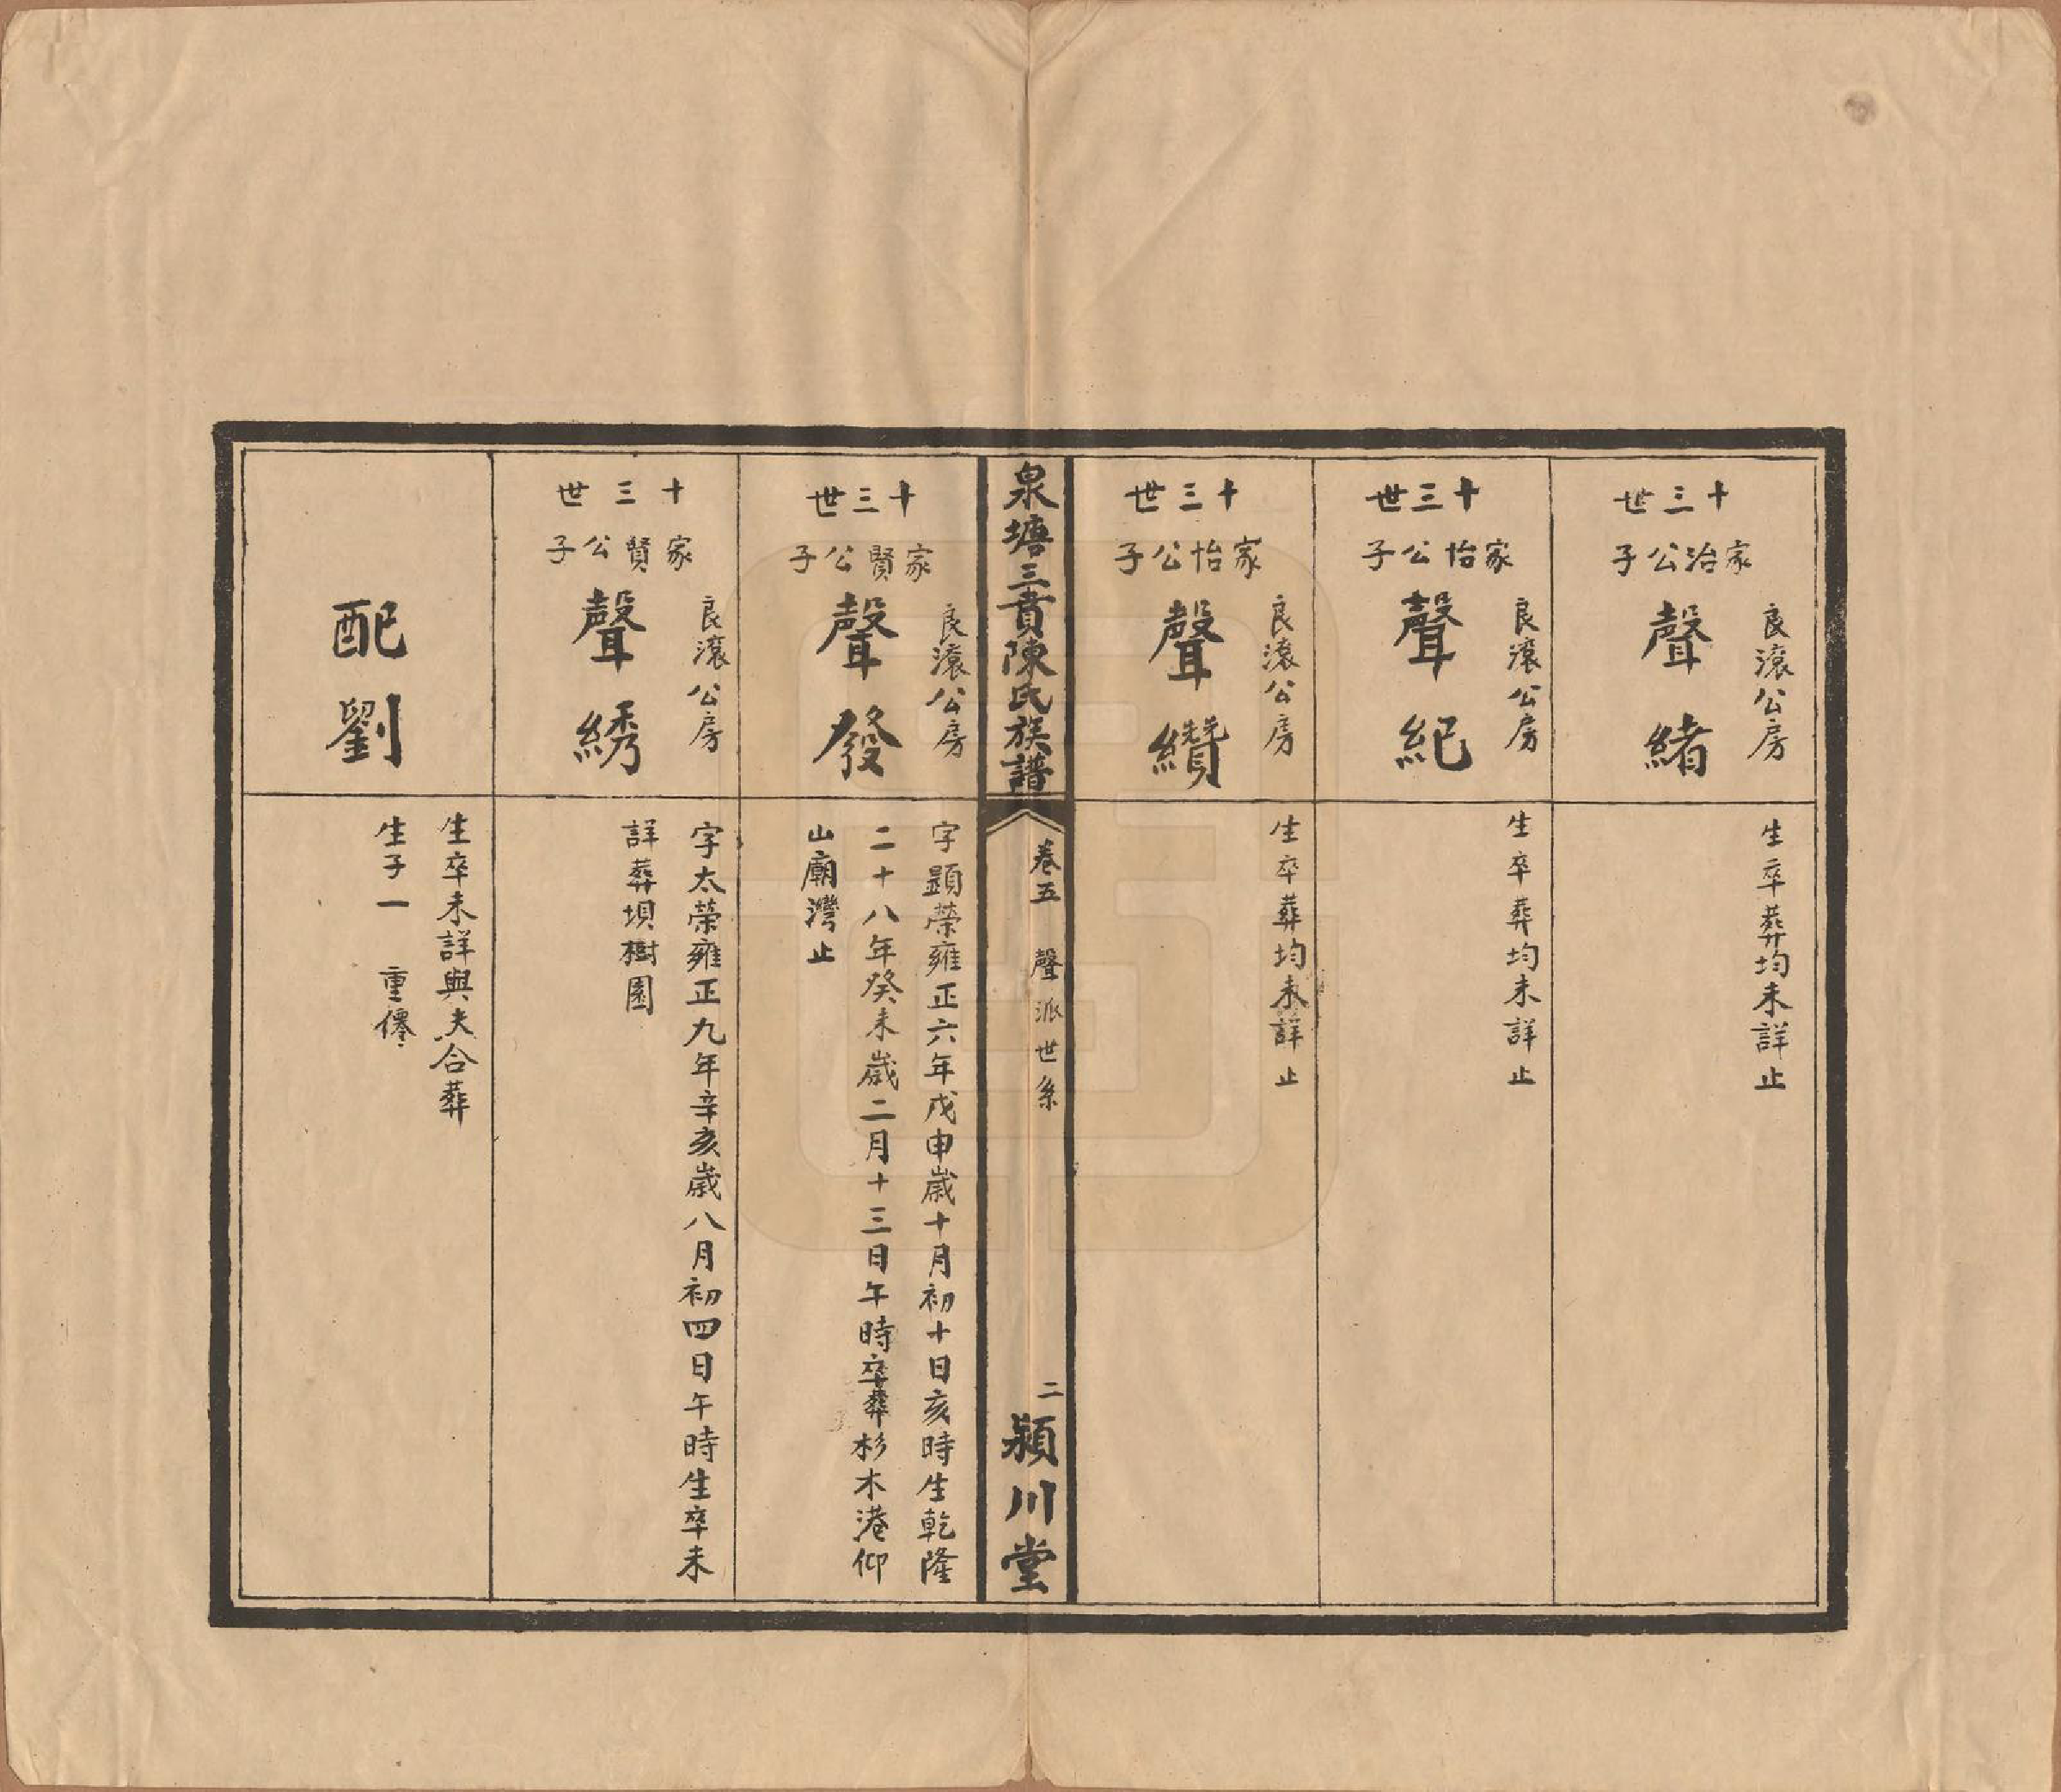 十三世
家治公子
良滾公房
聲緒
生卒葬均未詳止
十三世
家怡公子
良滾公房
聲紀
生卒葬均未詳止
十三世
家怡公子
良滾公房
聲纘
生卒葬均未詳止
泉塘三賁陳氏族譜
卷五 聲派世系
二
潁川堂
十三世
家賢公子
良滾公房
聲發
字顯榮雍正六年戊申歲十月初十日亥時生乾隆
二十八年癸未歲二月十三日午時卒葬杉木港仰
山廟灣止
十三世
家賢公子
良滾公房
聲綉
字太榮雍正九年辛亥歲八月初四日午時生卒未
詳葬垻樹園
配劉
生卒未詳與夫合葬
生子一 重僊